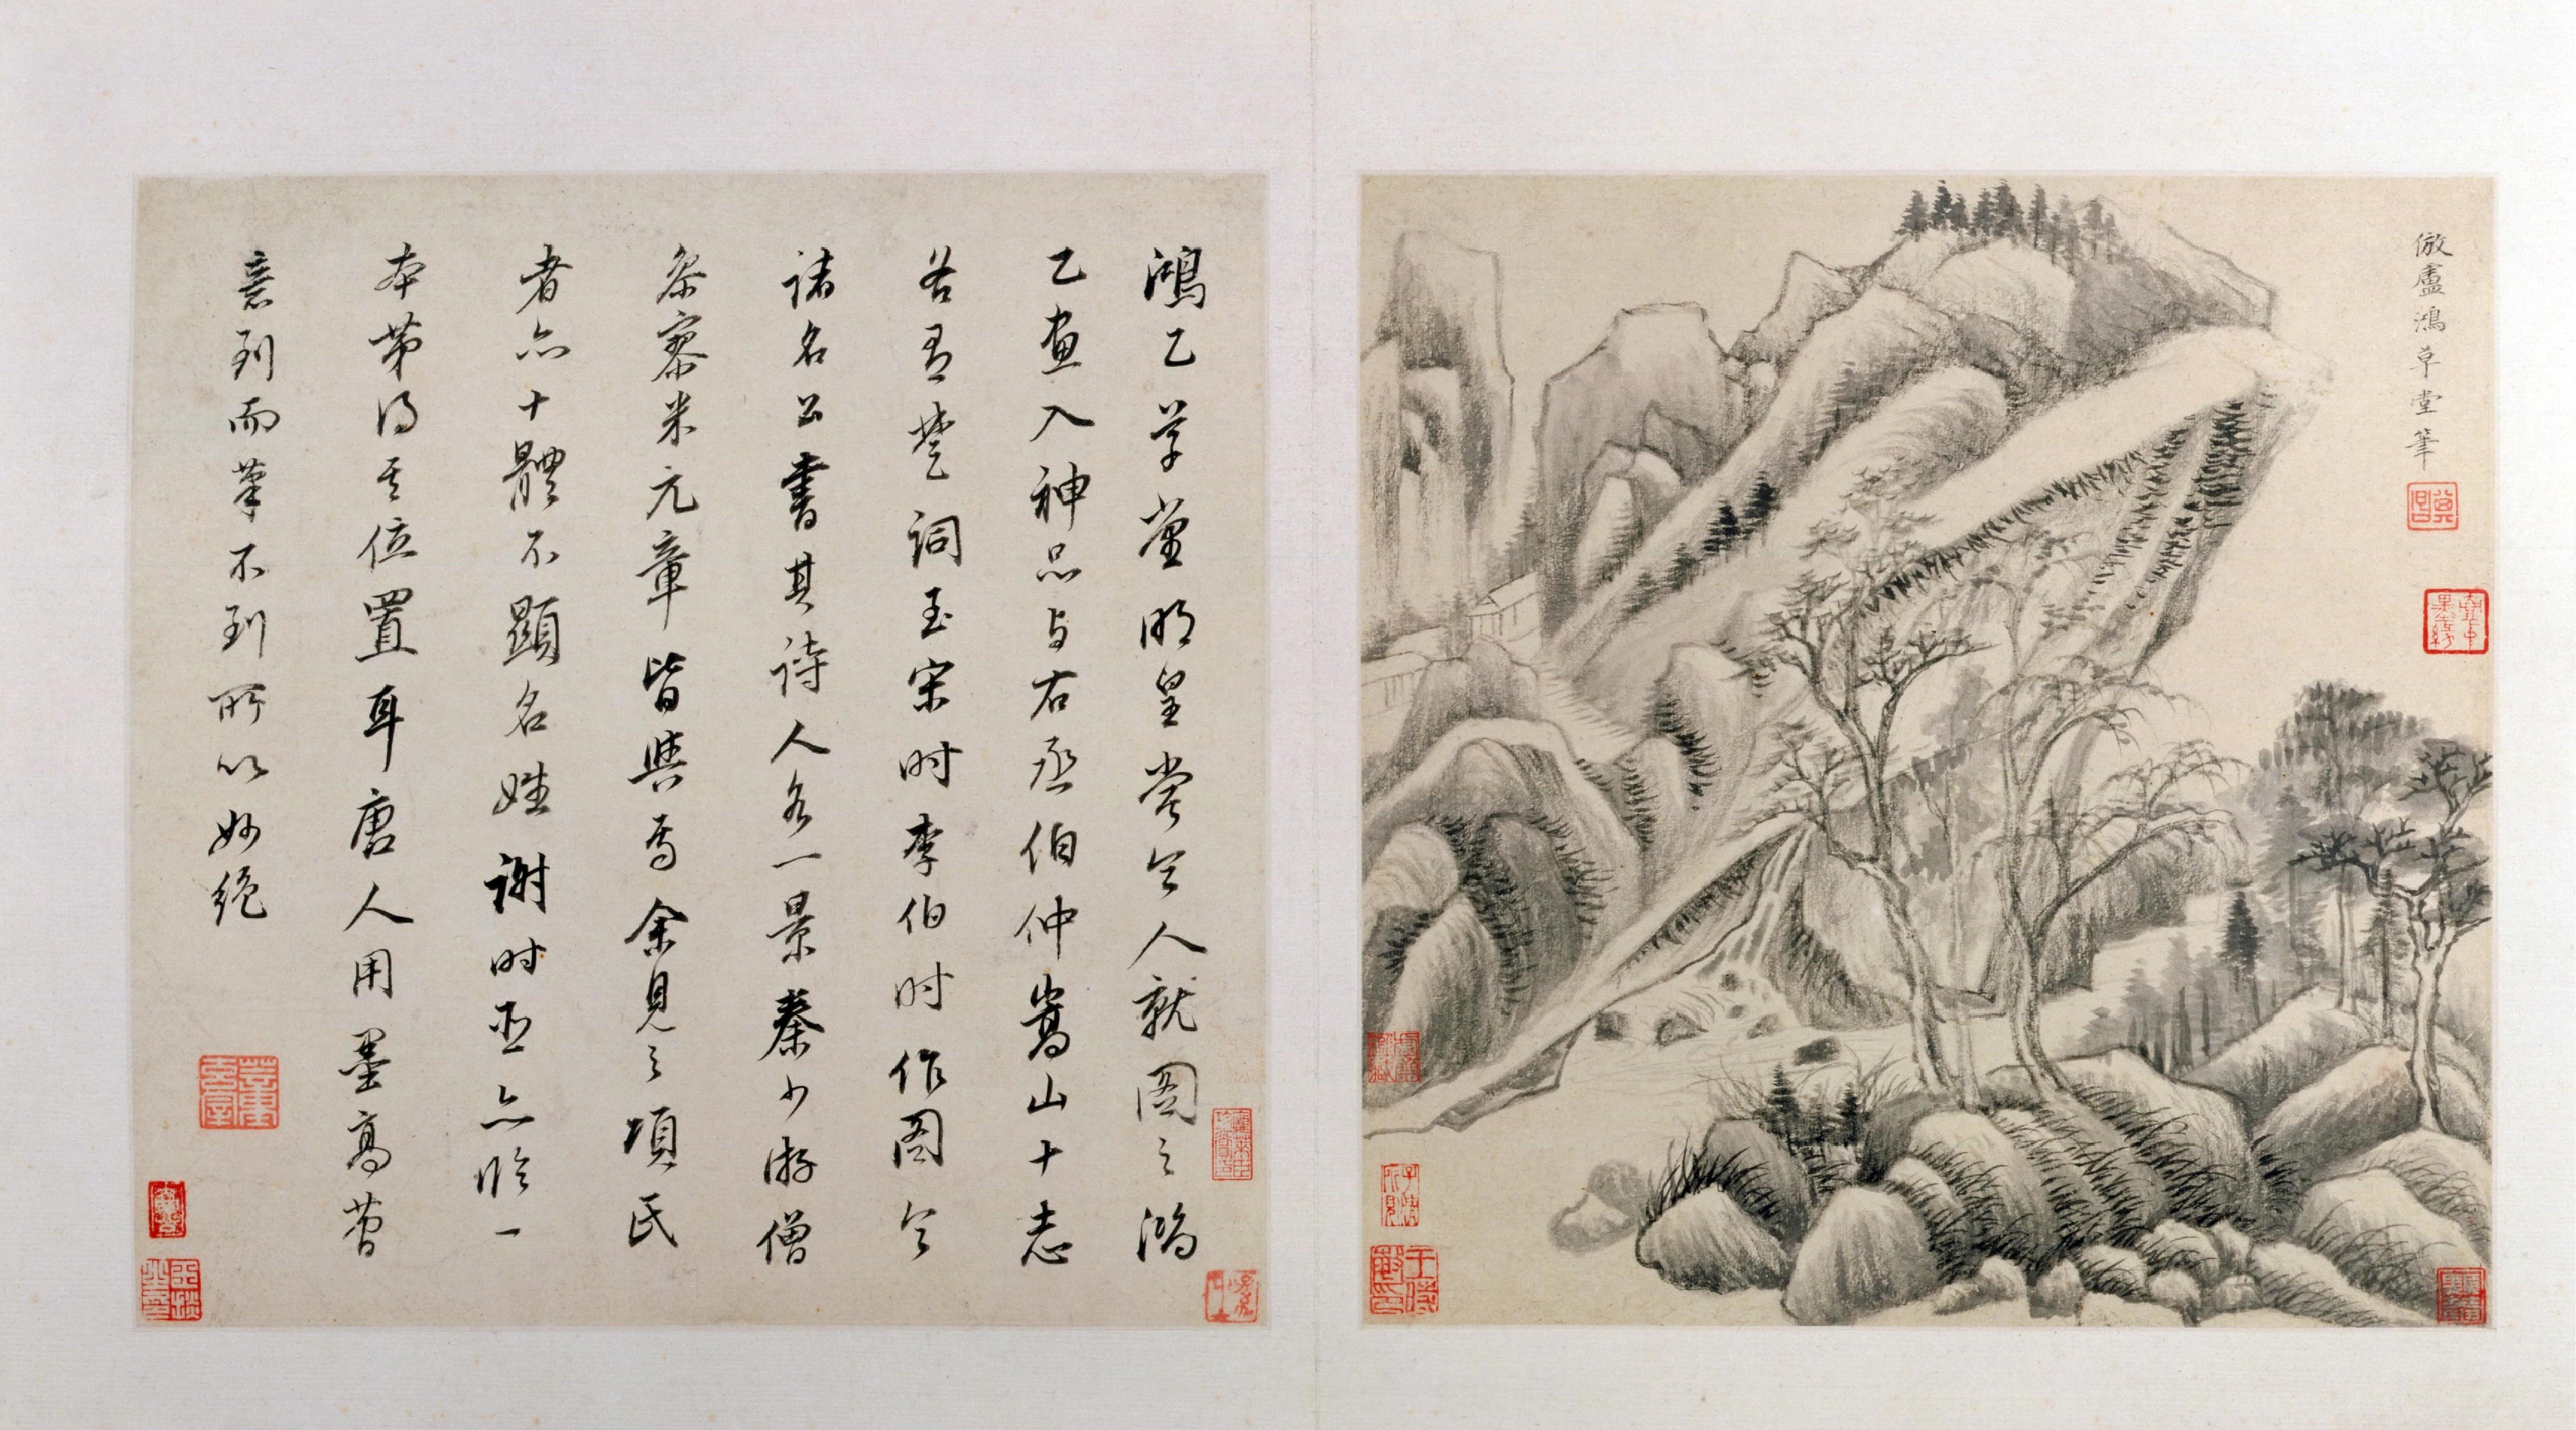 倣盧鴻草堂筆
鴻乙草堂明皇嘗令人就圖之鴻
乙畫入神品与右丞伯仲嵩山十志
各有楚詞至宋時李伯時作圖令
諸名公書其詩人各一景秦少游僧
參寥米元章皆與焉余見之項氏
者亦十體不顯名姓謝時臣亦臨一
本第得其位置耳唐人用墨高簡
意到而筆不到所以妙絕